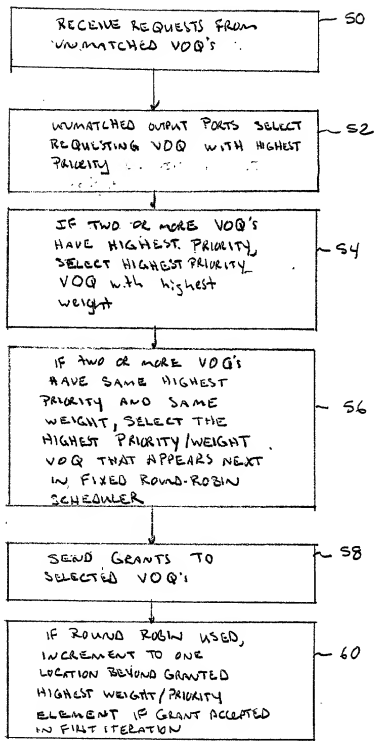 RECEIVE REQUESTS FROM
UNMATCHED VOQ'S
50
UNMATCHED OUTPUT PORTS SELECT
REQUESTING VOQ WITH HIGHEST
PRIORITY
52
IF TWO OR MORE VOQ'S
HAVE HIGHEST PRIORITY,
SELECT HIGHEST PRIORITY
VOQ with highest
weight
54
IF TWO OR MORE VOQ'S
HAVE SAME HIGHEST
PRIORITY AND SAME
WEIGHT, SELECT THE
HIGHEST PRIORITY/WEIGHT
VOQ THAT APPEARS NEXT
IN FIXED ROUND-ROBIN
SCHEDULER
56
SEND GRANTS TO
SELECTED VOQ's
58
IF ROUND ROBIN USED,
INCREMENT TO ONE
LOCATION BEYOND GRANTED
HIGHEST WEIGHT/PRIORITY
ELEMENT IF GRANT ACCEPTED
IN FIRST ITERATION
60